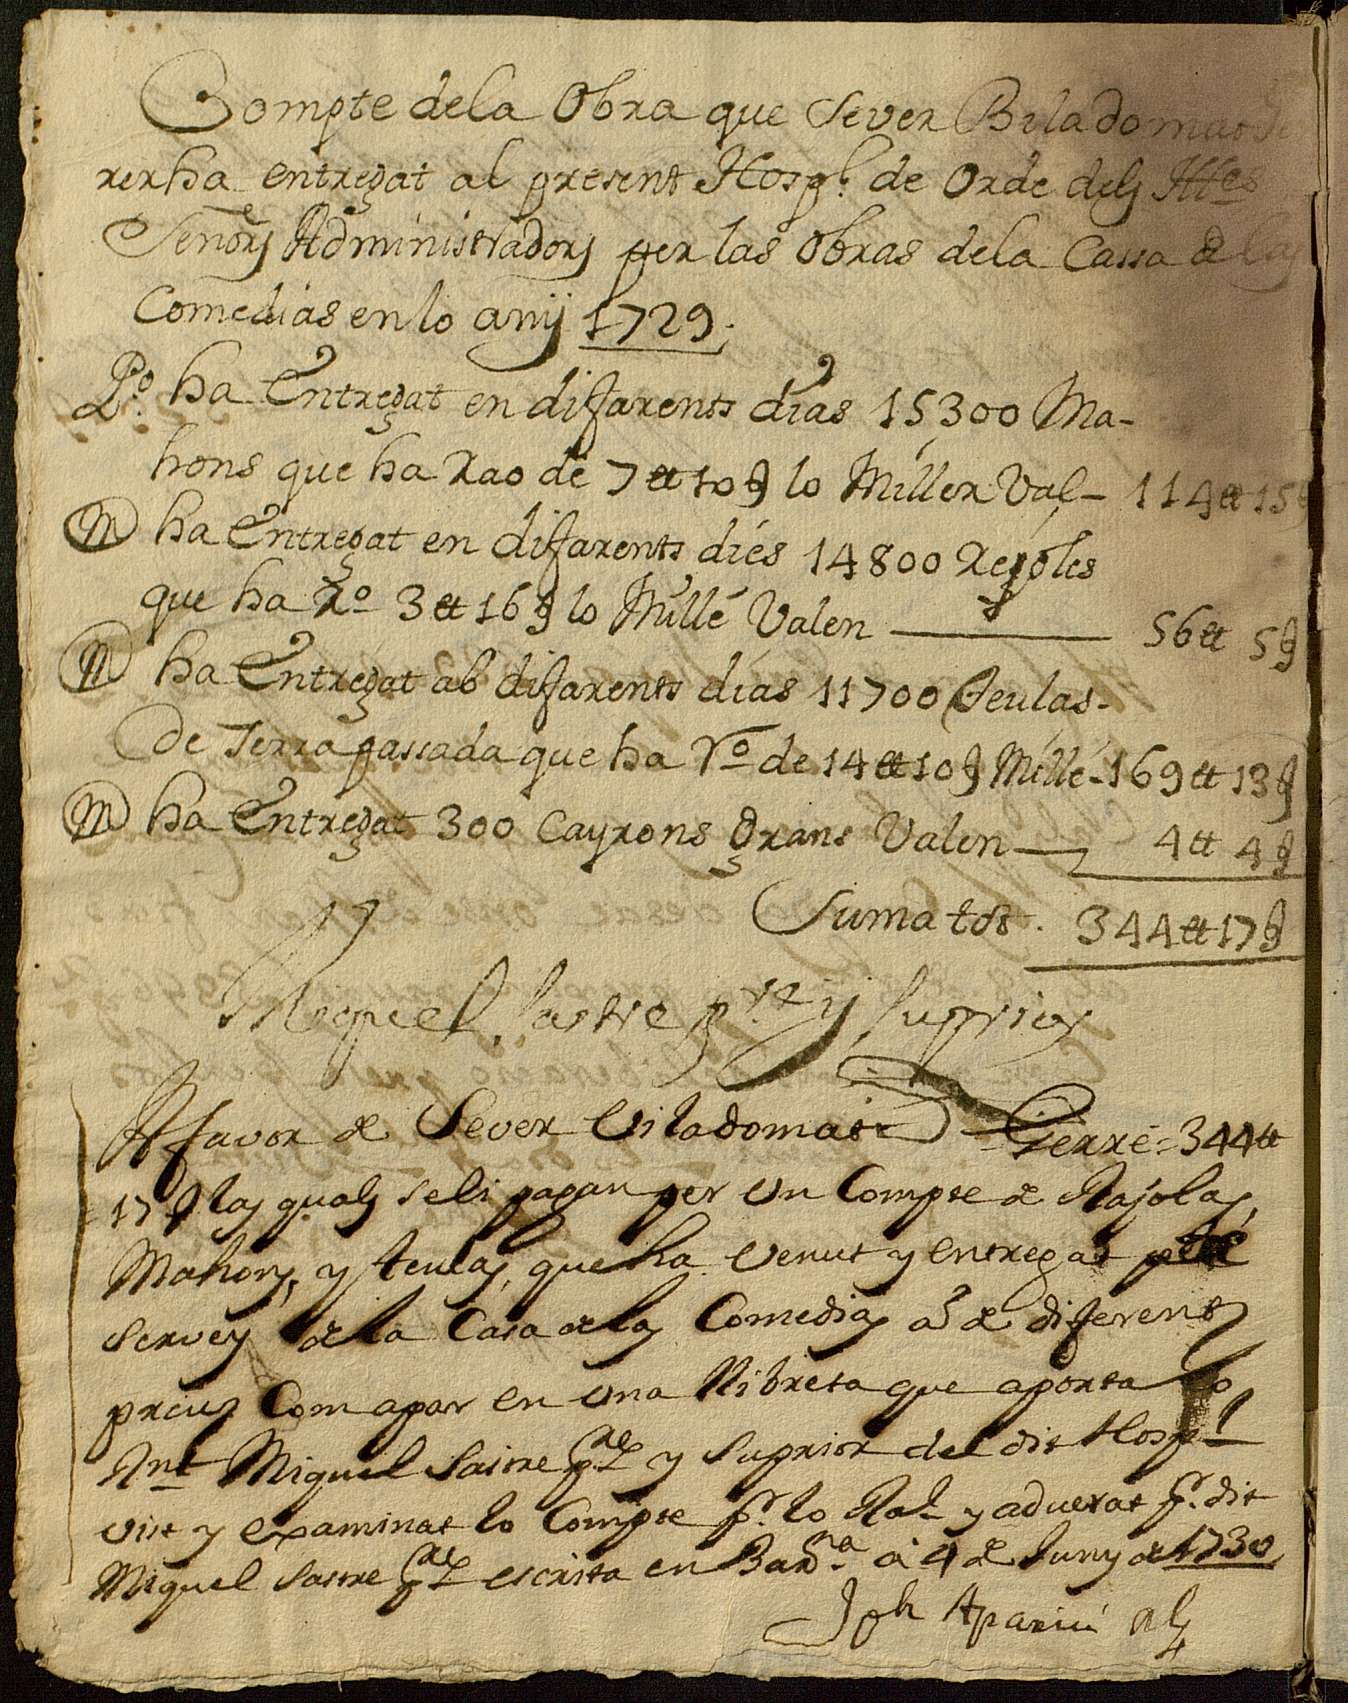 Compte dela Obra que Sever Biladomat
rer ha entregat al present Hosp.l de Orde dels Illes
Señors Administradors per las obras dela Cassa de las
Comedias en lo anÿ 1729.
P.o ha Entregat en difarents dias 15300 Ma-
hons que ha Rao de 7 tt 10 ß lo Miller Val- 114 tt 15 ß
M ha Entregat en difarents dies 14800 Rejoles
que ha Ro 3 tt 16 ß lo Millé Valen — 56 tt 5 ß
M ha Entregat ab difarents dias 11700 Teulas-
De Terra passada que ha Ro de 14 tt 10 ß Millé- 169 tt 13 ß
M ha Entregat 300 Cayrons grans Valen — 4 tt 4 ß
Suma tot. 344 tt 17 ß
Miquel Sastre pre y Suprior
A favor de Sever Viladomat Gerré = 344 tt
17 ß las quals seli pagan per un Compte de Rajolas,
Mahons, y teulas, que ha venut y entregat
servey de la Casa de las Comedias a de diferents
preus Com apar en una llibreta que aporta lo
Rnt Miquel Sastre pre y Suprior del dit Hosp.l
vist y examinat lo Compte pr. lo Ral y aduerat pr. dit
Miquel Sastre pre escrita en Barna a 4 de Juny de 1730
Jph Aparici